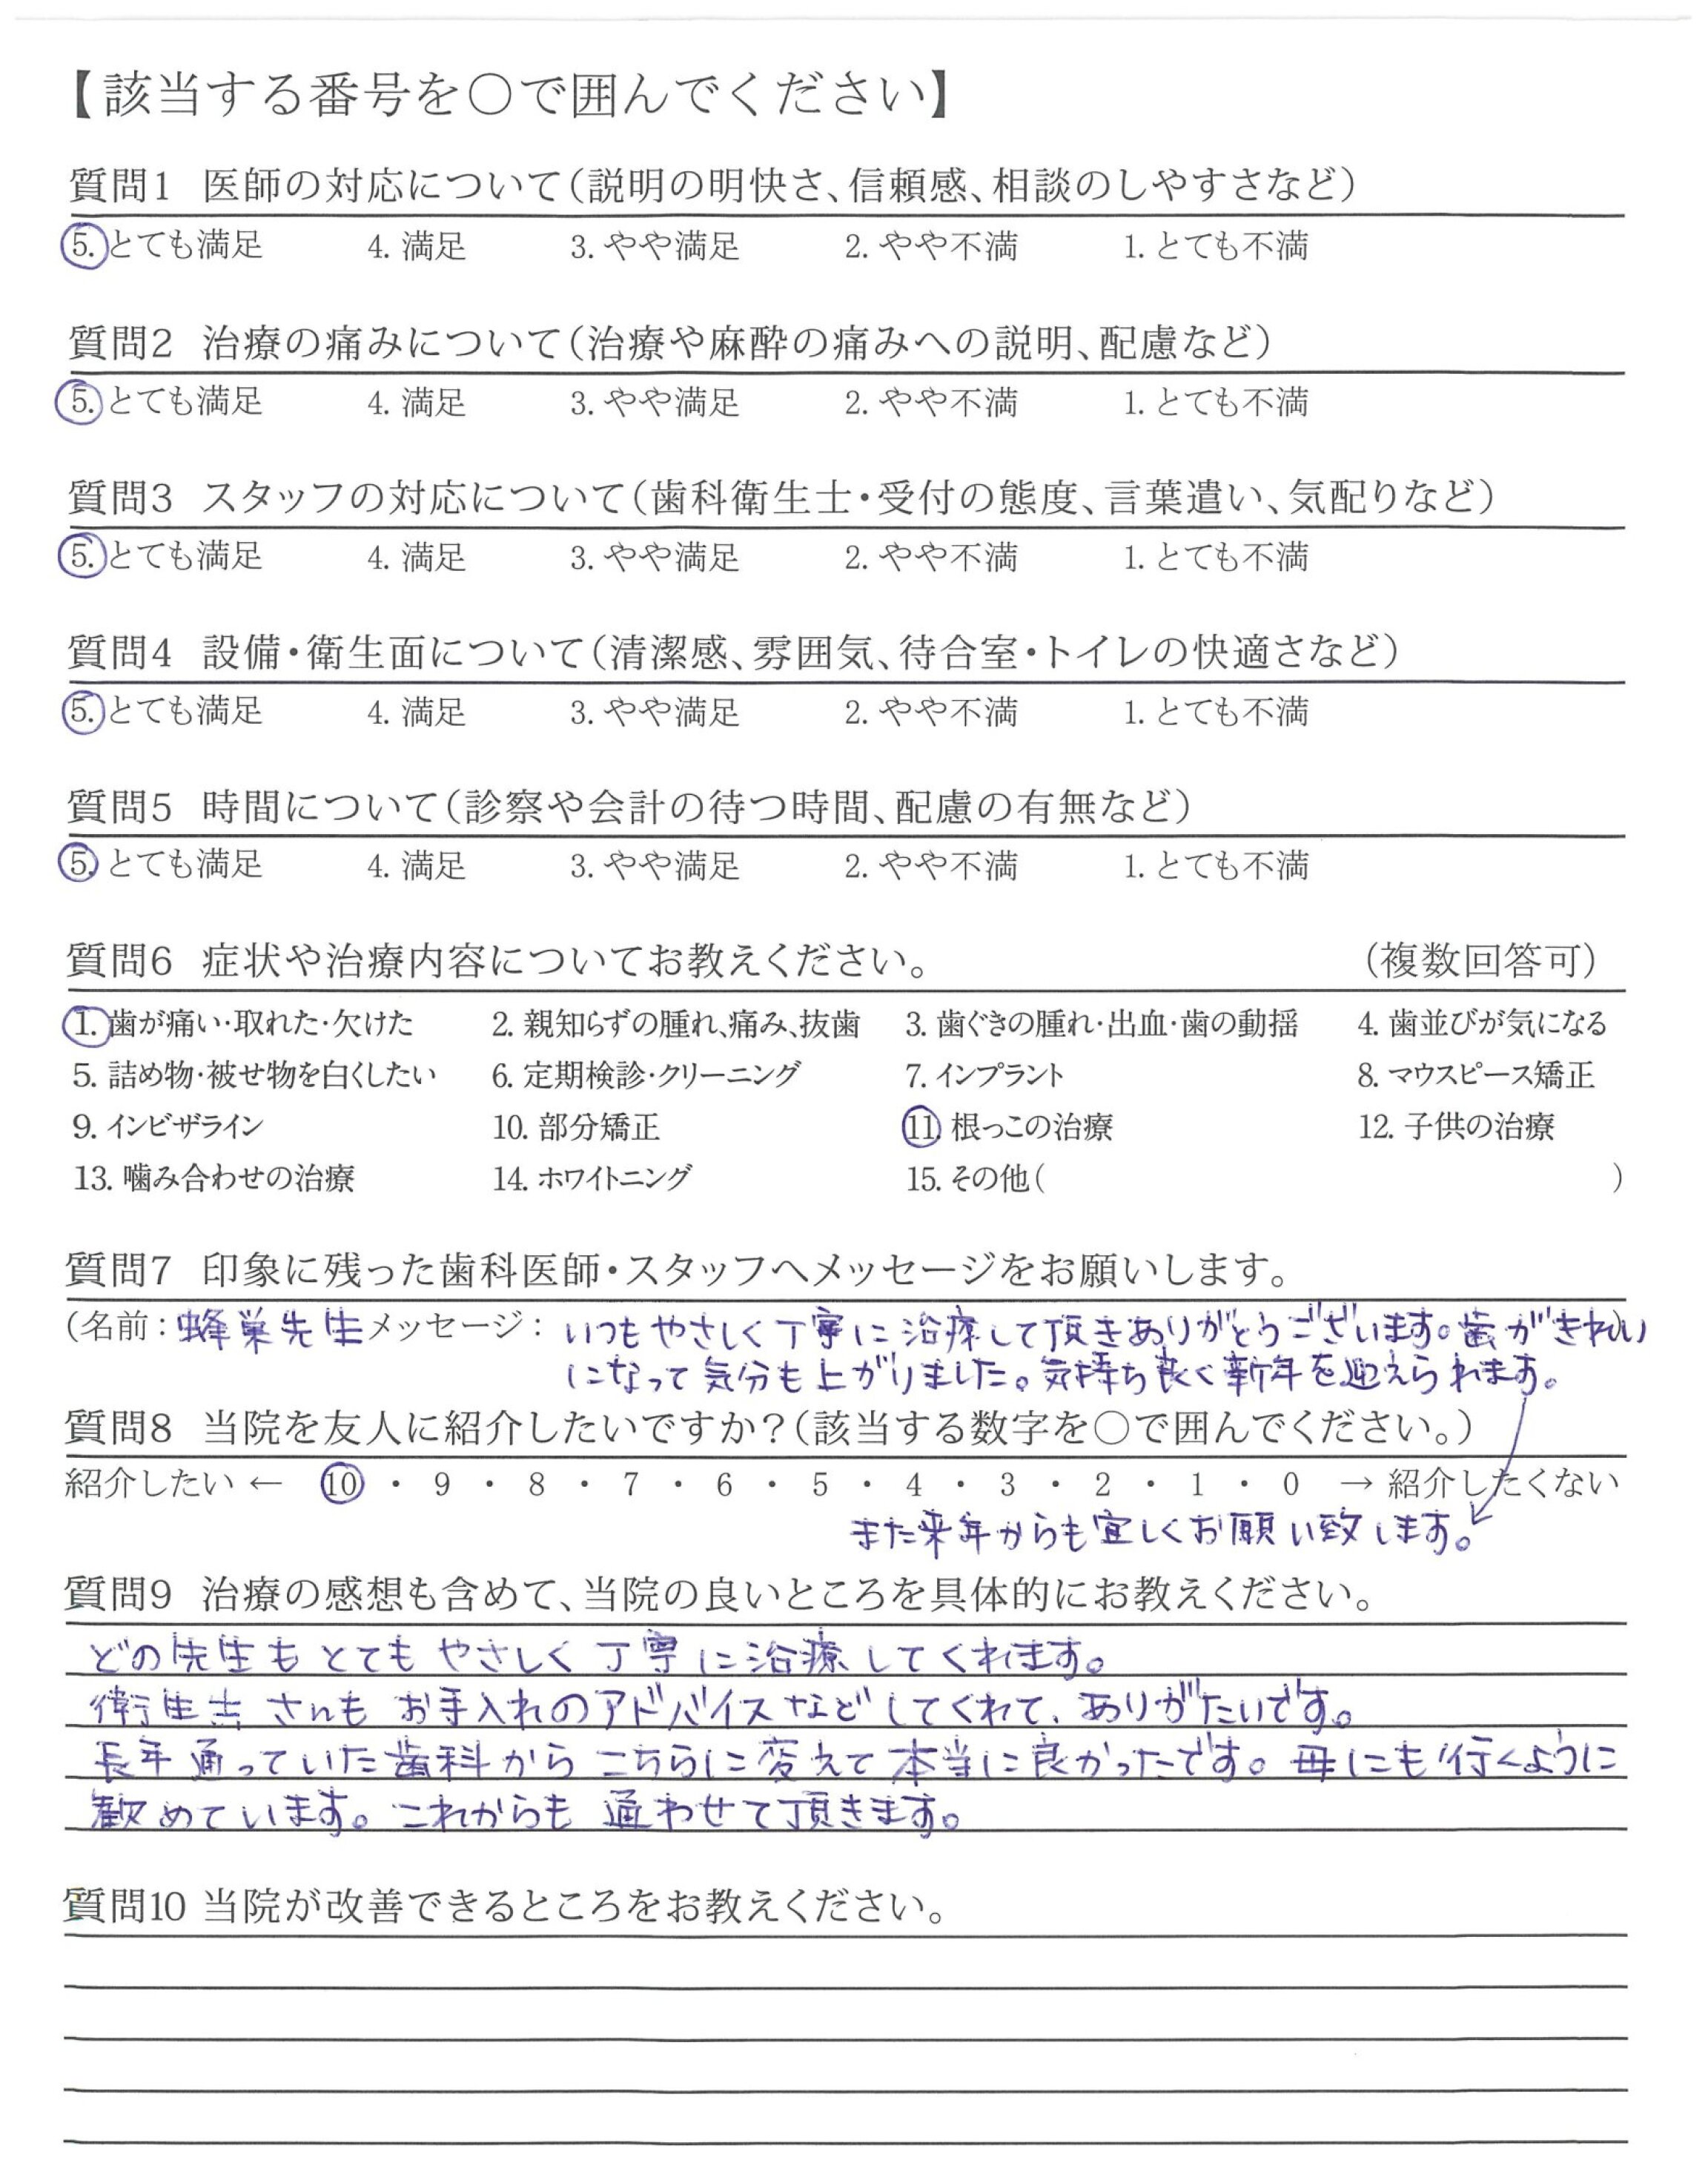 【該当する番号を〇で囲んでください】
質問1 医師の対応について(説明の明快さ、信頼感、相談のしやすさなど)
5. とても満足 4. 満足 3. やや満足 2. やや不満 1. とても不満
質問2 治療の痛みについて(治療や麻酔の痛みへの説明、配慮など)
5. とても満足 4. 満足 3. やや満足 2. やや不満 1. とても不満
質問3 スタッフの対応について(歯科衛生士・受付の態度、言葉遣い、気配りなど)
5. とても満足 4. 満足 3. やや満足 2. やや不満 1. とても不満
質問4 設備・衛生面について(清潔感、雰囲気、待合室・トイレの快適さなど)
5. とても満足 4. 満足 3. やや満足 2. やや不満 1. とても不満
質問5 時間について(診察や会計の待つ時間、配慮の有無など)
5. とても満足 4. 満足 3. やや満足 2. やや不満 1. とても不満
質問6 症状や治療内容についてお教えください。 (複数回答可)
1. 歯が痛い・取れた・欠けた 2. 親知らずの腫れ、痛み、抜歯 3. 歯ぐきの腫れ・出血・歯の動揺 4. 歯並びが気になる
5. 詰め物・被せ物を白くしたい 6. 定期検診・クリーニング 7. インプラント 8. マウスピース矯正
9. インビザライン 10. 部分矯正 11. 根っこの治療 12. 子供の治療
13. 噛み合わせの治療 14. ホワイトニング 15. その他( )
質問7 印象に残った歯科医師・スタッフへメッセージをお願いします。
(名前: 蜂巣先生 メッセージ: いつもやさしく丁寧に治療して頂きありがとうございます。歯がきれい)
になって気分も上がりました。気持ち良く新年を迎えられます。
質問8 当院を友人に紹介したいですか?(該当する数字を〇で囲んでください。)
紹介したい ← 10 ・ 9 ・ 8 ・ 7 ・ 6 ・ 5 ・ 4 ・ 3 ・ 2 ・ 1 ・ 0 → 紹介したくない
また来年からも宜しくお願い致します。
質問9 治療の感想も含めて、当院の良いところを具体的にお教えください。
どの先生もとてもやさしく丁寧に治療してくれます。
衛生士さんもお手入れのアドバイスなどしてくれて、ありがたいです。
長年通っていた歯科からこちらに変えて本当に良かったです。母にも行くように
歓めています。これからも通わせて頂きます。
質問10 当院が改善できるところをお教えください。